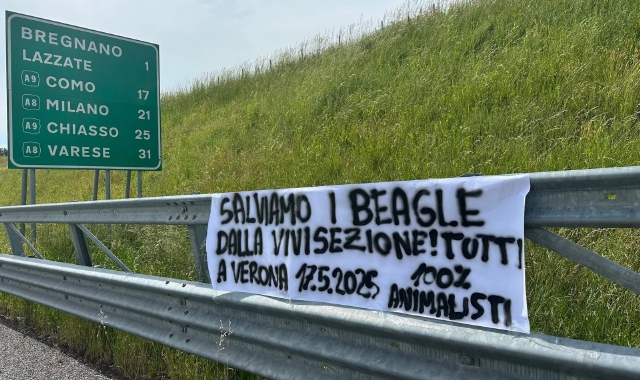 BREGNANO
LAZZATE 1
A9 COMO 17
A8 MILANO 21
A9 CHIASSO 25
A8 VARESE 31
SALVIAMO I BEAGLE
DALLA VIVISEZIONE! TUTTI
A VERONA 17.5.2025 100%
ANIMALISTI